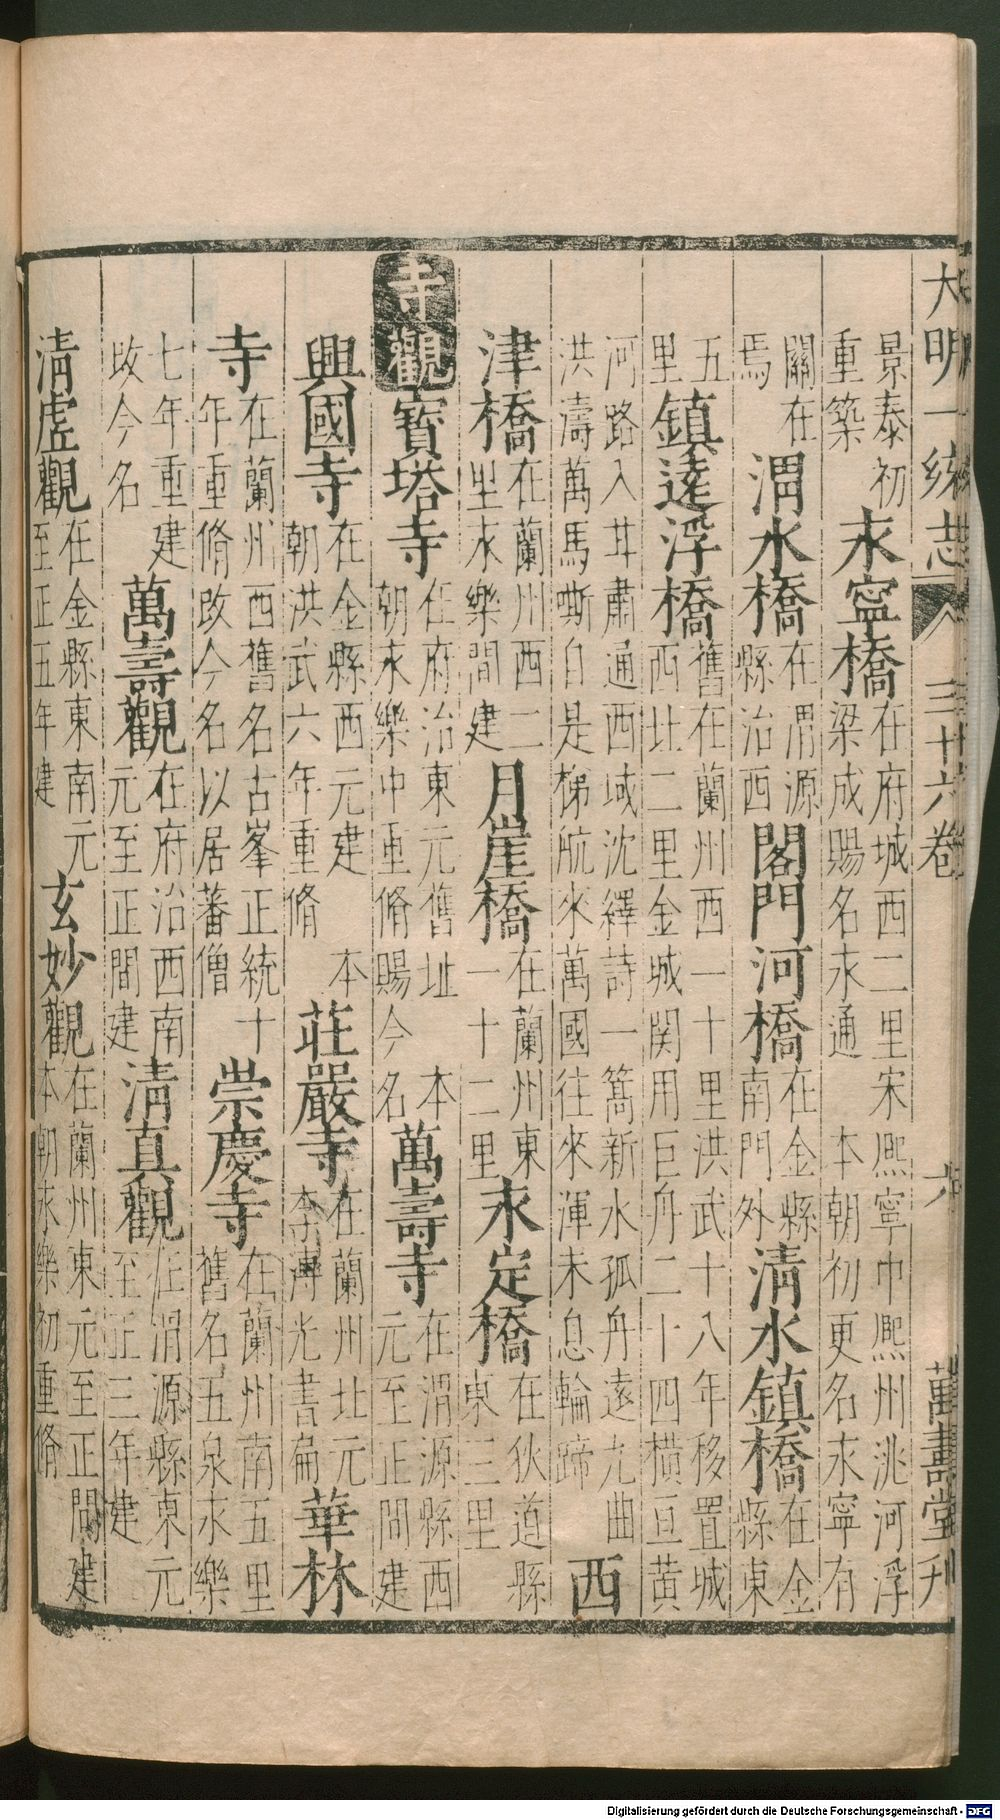 大明一統志 三十六卷 六 萬壽堂刊
景泰初重築 永寧橋 在府城西二里宋熙寧中熙州洮河浮梁成賜名永通 本朝初更名永寧有
關在焉 渭水橋 在渭源縣治西 閤門河橋 在金縣南門外 清水鎮橋 在金縣東
五里 鎮遠浮橋 舊在蘭州西一十里洪武十八年移置城西北二里金城関用巨舟二十四橫亘黄
河路入甘肅通西域沈繹詩一篙新水孤舟遠九曲洪濤萬馬嘶自是梯航來萬國往來渾未息輪蹄 西
津橋 在蘭州西二里永樂間建 月崖橋 在蘭州東一十二里 永定橋 在伙道縣東三里
寺觀 寶塔寺 在府治東元舊址 本朝永樂中重脩賜今名 萬壽寺 在渭源縣西元至正間建
興國寺 在金縣西元建 本朝洪武六年重脩 莊嚴寺 在蘭州北元李溥光書扁 華林
寺 在蘭州西舊名古峯正統十年重脩改今名以居蕃僧 崇慶寺 在蘭州南五里舊名五泉永樂
七年重建改今名 萬壽觀 在府治西南元至正間建 清真觀 在渭源縣東元至正三年建
清虛觀 在金縣東南元至正五年建 玄妙觀 在蘭州東元至正間建本朝永樂初重脩
Digitalisierung gefördert durch die Deutsche Forschungsgemeinschaft - DFG